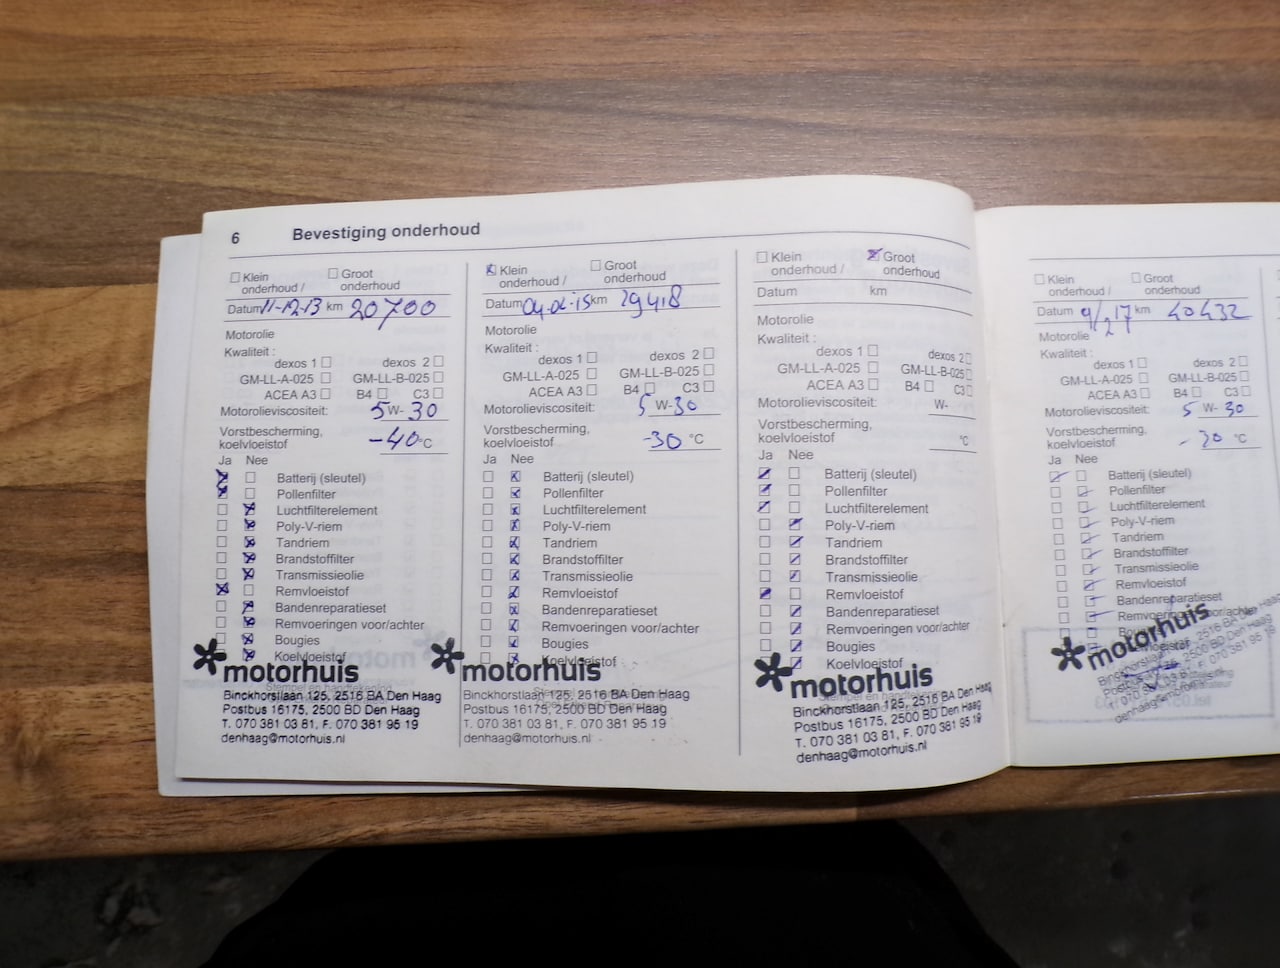 6 Bevestiging onderhoud
☐ Klein onderhoud / ☐ Groot onderhoud
Datum 11-12-13 km 20700
Motorolie
Kwaliteit :
dexos 1 ☐ dexos 2 ☐
GM-LL-A-025 ☐ GM-LL-B-025 ☐
ACEA A3 ☐ B4 ☐ C3 ☐
Motorolieviscositeit: 5 W- 30
Vorstbescherming,
koelvloeistof -40 °C
Ja Nee
☒ ☐ Batterij (sleutel)
☒ ☐ Pollenfilter
☐ ☒ Luchtfilterelement
☐ ☒ Poly-V-riem
☐ ☒ Tandriem
☐ ☒ Brandstoffilter
☐ ☒ Transmissieolie
☒ ☐ Remvloeistof
☐ ☒ Bandenreparatieset
☐ ☒ Remvoeringen voor/achter
☐ ☒ Bougies
☐ ☒ Koelvloeistof
motorhuis
Binckhorstlaan 125, 2516 BA Den Haag
Postbus 16175, 2500 BD Den Haag
T. 070 381 03 81, F. 070 381 95 19
denhaag@motorhuis.nl
☒ Klein onderhoud / ☐ Groot onderhoud
Datum km 29418
Motorolie
Kwaliteit :
dexos 1 ☐ dexos 2 ☐
GM-LL-A-025 ☐ GM-LL-B-025 ☐
ACEA A3 ☐ B4 ☐ C3 ☐
Motorolieviscositeit: 5 W-30
Vorstbescherming,
koelvloeistof -30 °C
Ja Nee
☐ ☒ Batterij (sleutel)
☐ ☒ Pollenfilter
☐ ☒ Luchtfilterelement
☐ ☒ Poly-V-riem
☐ ☒ Tandriem
☐ ☒ Brandstoffilter
☐ ☒ Transmissieolie
☐ ☒ Remvloeistof
☐ ☒ Bandenreparatieset
☐ ☒ Remvoeringen voor/achter
☐ ☒ Bougies
☐ ☒ Koelvloeistof
motorhuis
Binckhorstlaan 125, 2516 BA Den Haag
Postbus 16175, 2500 BD Den Haag
T. 070 381 03 81, F. 070 381 95 19
denhaag@motorhuis.nl
☐ Klein onderhoud / ☒ Groot onderhoud
Datum km
Motorolie
Kwaliteit :
dexos 1 ☐ dexos 2 ☐
GM-LL-A-025 ☐ GM-LL-B-025 ☐
ACEA A3 ☐ B4 ☐ C3 ☐
Motorolieviscositeit: W-
Vorstbescherming,
koelvloeistof °C
Ja Nee
☒ ☐ Batterij (sleutel)
☒ ☐ Pollenfilter
☒ ☐ Luchtfilterelement
☐ ☒ Poly-V-riem
☐ ☒ Tandriem
☐ ☒ Brandstoffilter
☐ ☒ Transmissieolie
☒ ☐ Remvloeistof
☐ ☒ Bandenreparatieset
☐ ☒ Remvoeringen voor/achter
☐ ☒ Bougies
☐ ☒ Koelvloeistof
motorhuis
Binckhorstlaan 125, 2516 BA Den Haag
Postbus 16175, 2500 BD Den Haag
T. 070 381 03 81, F. 070 381 95 19
denhaag@motorhuis.nl
☐ Klein onderhoud / ☐ Groot onderhoud
Datum 9/2 17 km 40432
Motorolie
Kwaliteit :
dexos 1 ☐ dexos 2 ☐
GM-LL-A-025 ☐ GM-LL-B-025 ☐
ACEA A3 ☐ B4 ☐ C3 ☐
Motorolieviscositeit: 5 W- 30
Vorstbescherming,
koelvloeistof °C
Ja Nee
☒ ☐ Batterij (sleutel)
☐ ☒ Pollenfilter
☐ ☒ Luchtfilterelement
☐ ☒ Poly-V-riem
☐ ☒ Tandriem
☐ ☒ Brandstoffilter
☐ ☒ Transmissieolie
☐ ☒ Remvloeistof
☐ ☒ Bandenreparatieset
☐ ☒ Remvoeringen voor/achter
motorhuis